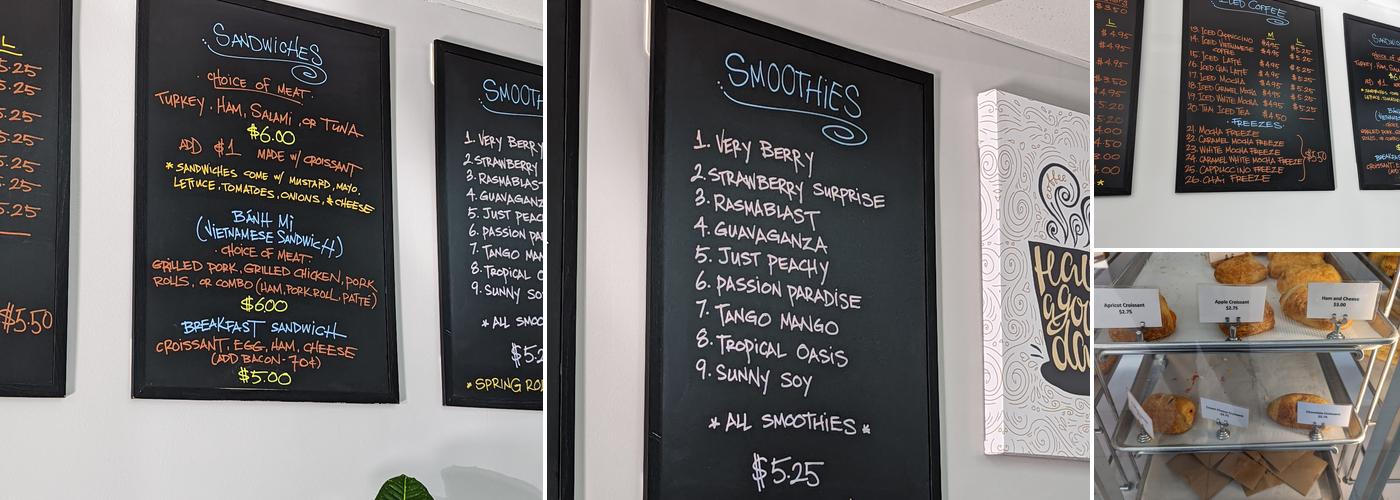 L
5.25
5.25
5.25
5.25
5.25
5.25
$5.50
SANDWICHES
CHOICE OF MEAT
TURKEY, HAM, SALAMI, OR TUNA
$6.00
ADD $1 MADE W/ CROISSANT
* SANDWICHES COME W/ MUSTARD, MAYO,
LETTUCE, TOMATOES, ONIONS, & CHEESE
BÁNH MÌ
(VIETNAMESE SANDWICH)
CHOICE OF MEAT
GRILLED PORK, GRILLED CHICKEN, PORK
ROLLS, OR COMBO (HAM, PORK ROLL, PATTÉ)
$6.00
BREAKFAST SANDWICH
CROISSANT, EGG, HAM, CHEESE
(ADD BACON - 70¢)
$5.00
SMOOTH
1. VERY BERRY
2. STRAWBERRY
3. RASMABLAST
4. GUAVAGANZ
5. JUST PEAC
6. PASSION PA
7. TANGO MAN
8. TROPICAL O
9. SUNNY SO
* ALL SMOO
$5.2
* SPRING RO
SMOOTHIES
1. VERY BERRY
2. STRAWBERRY SURPRISE
3. RASMABLAST
4. GUAVAGANZA
5. JUST PEACHY
6. PASSION PARADISE
7. TANGO MANGO
8. TROPICAL OASIS
9. SUNNY SOY
* ALL SMOOTHIES *
$5.25
Have
a good
da
$3.50
L
$4.95
$4.95
$4.95
$3.50
$4.95
5.20
4.00
4.50
3.00
4.00
*
ICED COFFEE
M L
13. ICED CAPPUCCINO $4.95 $5.25
14. ICED VIETNAMESE COFFEE $4.95 $5.25
15. ICED LATTE $4.95 $5.25
16. ICED CHAI LATTE $4.95 $5.25
17. ICED MOCHA $4.95 $5.25
18. ICED CARAMEL MOCHA $4.95 $5.25
19. ICED WHITE MOCHA $4.95 $5.25
20. THAI ICED TEA $4.50
FREEZES
21. MOCHA FREEZE
22. CARAMEL MOCHA FREEZE
23. WHITE MOCHA FREEZE
24. CARAMEL WHITE MOCHA FREEZE
25. CAPPUCCINO FREEZE
26. CHAI FREEZE
$5.50
Apricot Croissant
$2.75
Apple Croissant
$2.75
Ham and Cheese
$3.00
Chocolate Croissant